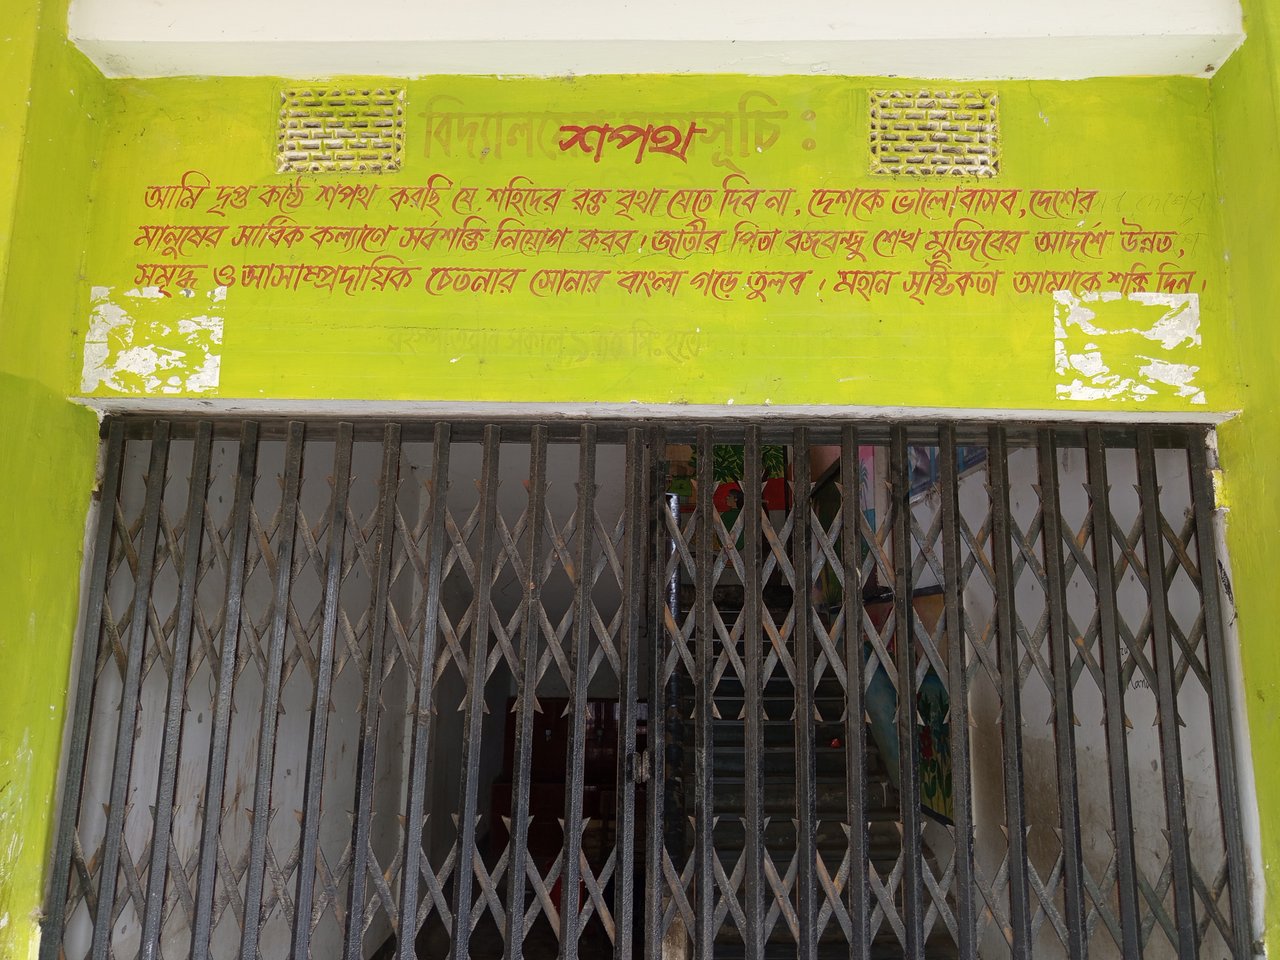 শপথ
আমি দৃপ্ত কন্ঠে শপথ করছি যে শহিদের রক্ত বৃথা যেতে দিব না, দেশকে ভালোবাসব, দেশের
মানুষের সার্বিক কল্যাণে সর্বশক্তি নিয়োগ করব। জাতীর পিতা বঙ্গবন্ধু শেখ মুজিবের আদর্শে উন্নত,
সমৃদ্ধ ও আসাম্প্রদায়িক চেতনার সোনার বাংলা গড়ে তুলব। মহান সৃষ্টিকর্তা আমাকে শক্তি দিন।